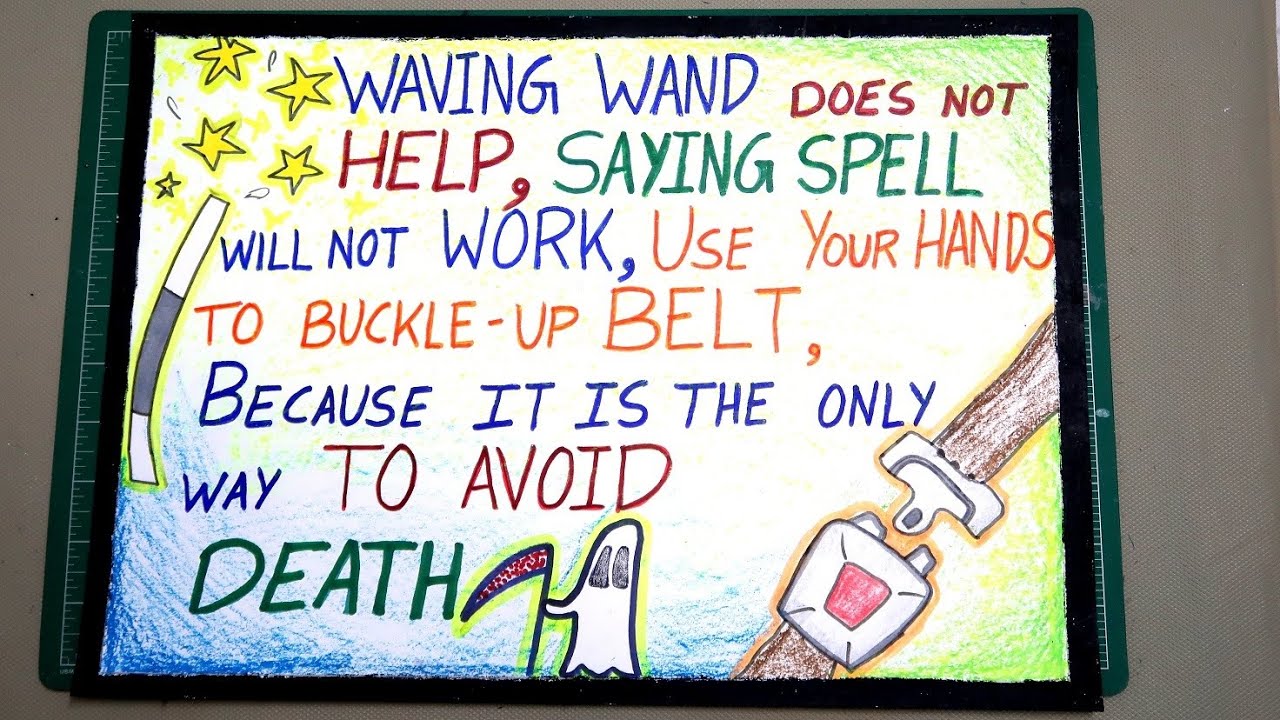 WAVING WAND DOES NOT
HELP, SAYING SPELL
WILL NOT WORK, USE YOUR HANDS
TO BUCKLE-UP BELT,
BECAUSE IT IS THE ONLY
WAY TO AVOID
DEATH